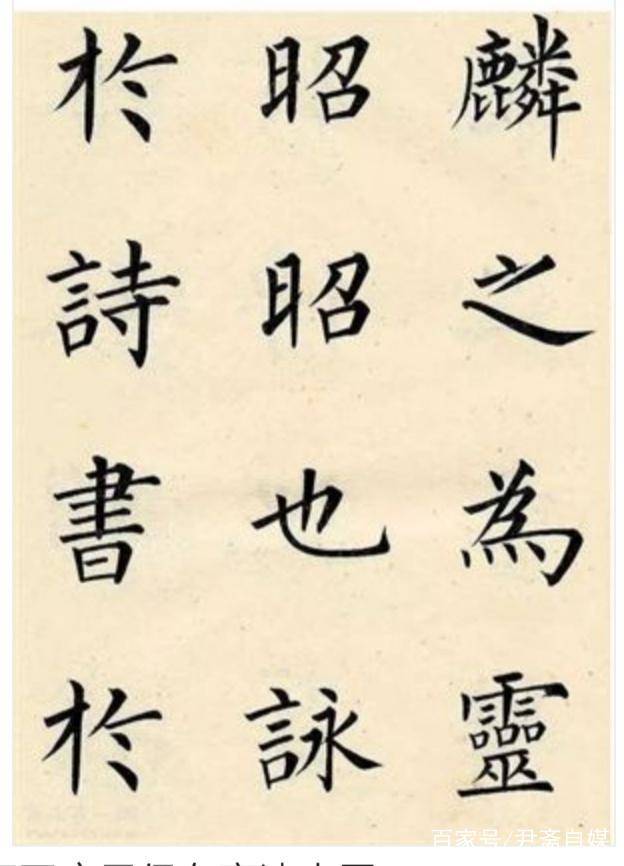 麟之為靈
昭昭也詠
於詩書於
百家号/尹斋自媒